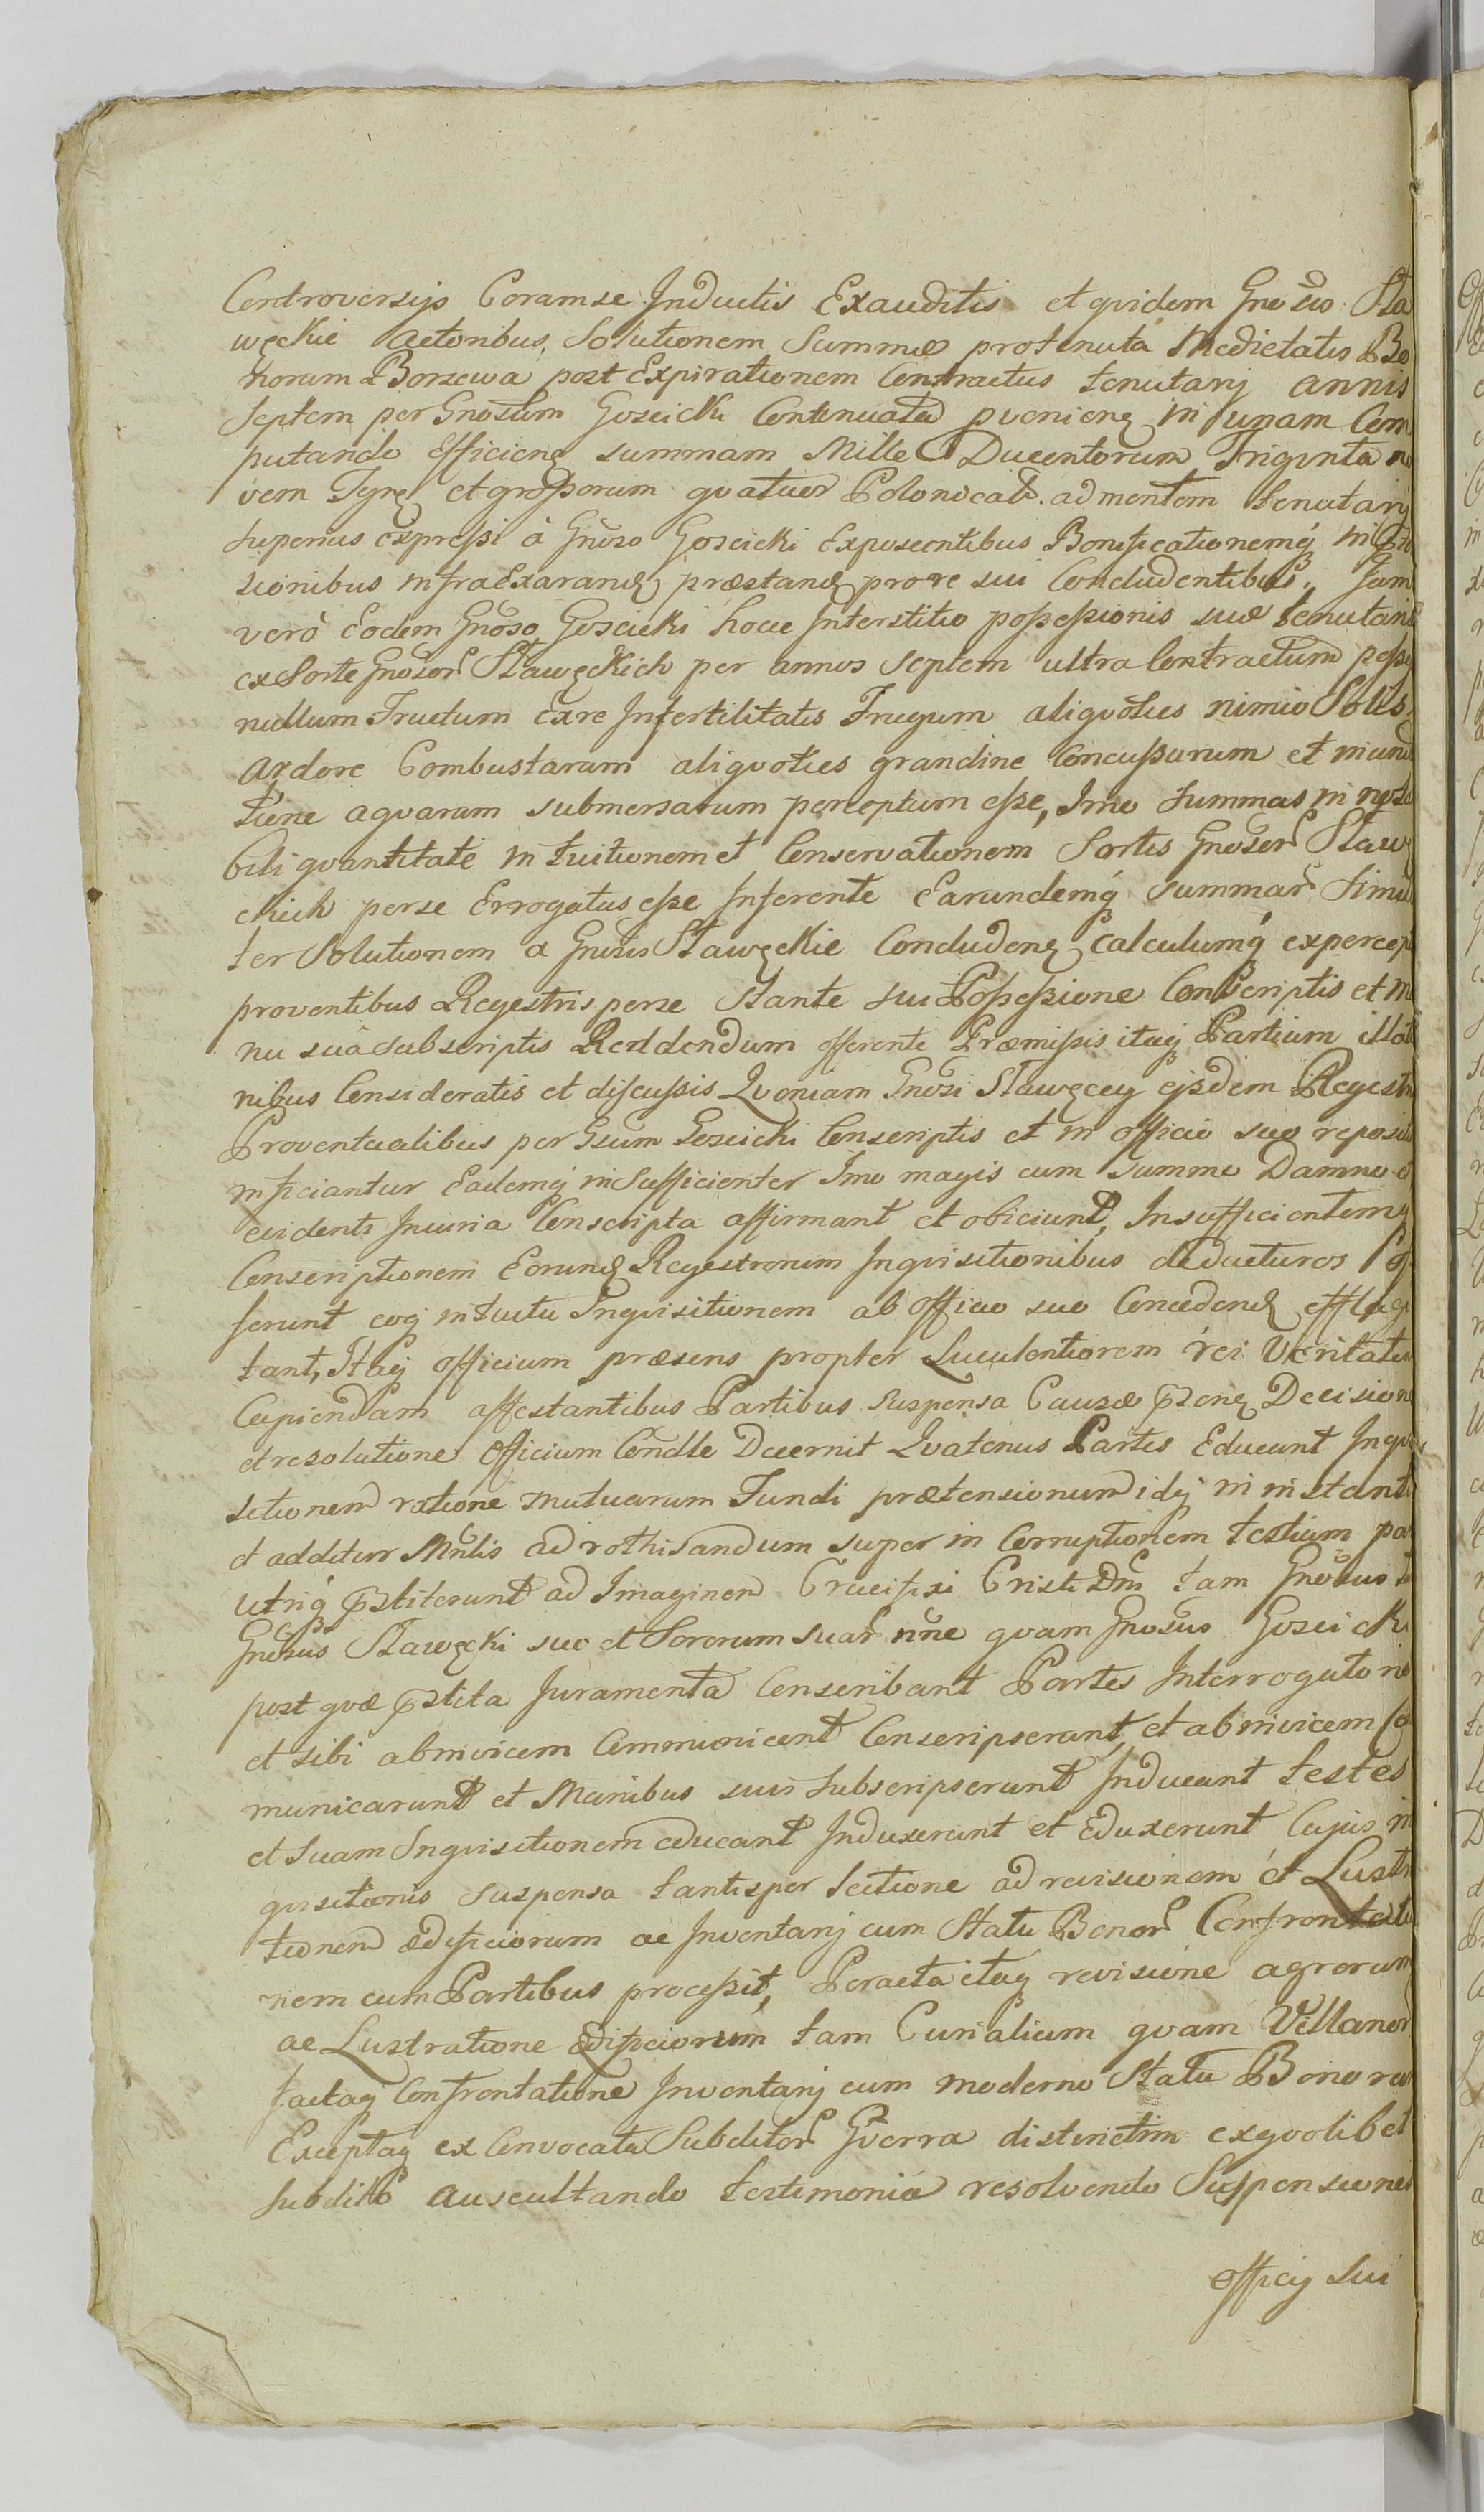 Controversijs Coram se Inductis Exauditis et quidem Gnosis Sta
węckie Actoribus, Solutionem Summæ pro tenuta Medietatis Bo
norum Borzewa post Expirationem Contractus tenutarij annis
Septem per Gnosum Goscicki Continuata pvenienẽ in unam Com
putando Efficienẽ summam Mille Ducentorum Triginta no
vem Tynf et grossorum quatuor Polonicals. ad mentem tenutarij
superius expressi à Gnoso Goscicki Exposcentibus Bonificationemq́
sionibus infra Exarandẽ præstandẽ pro re sui Concludentibus, Jam
verò Eodem Gnoso Goscicki hocce Interstitio possessionis suæ tenutariæ
ex Sorte Gnosor Stawęckich per annos septem ultra Contractum
nullum Fructum Ex re Infertilitatis Frugum aliquoties nimio Solis
Ardore Combustarum aliquoties grandine Concussarum et inunda
tione aquarum submersarum perceptum esse, Imo summas in nota
bili quantitate in tuitionem et Conservationem Sortis Gnosor Stawę
ckich per se Errogatas esse Inferente Earundemq́ summar Simili
ter Solutionem a Gnosis Stawęckie Concludenẽ Calculumq́ ex percep
proventibus Regestris per se stante sui Possessione Conscriptis et ma
nu suâ subscriptis Reddendum offerente Præmissis itaq Partium illatio
nibus Consideratis et discussis Quoniam Gnosi Stawęccy ejsdem Regestris
Proventualibus per Gsum Goscicki Conscriptis et in officio suo reposi
inficiantur Eademq insufficienter Imo magis cum summo Damno et
evidenti Iniuria Conscripta affirmant et obiciunt, Insufficientemq
Conscriptionem Eorundẽ Regestrorum Inquisitionibus deducturos
ferunt eoq intuitu Inquisitionem ab officio suo Concedendẽ efflagi
tant, Itaq officium præsens propter Luculentiorem rei Veritatem
Capiendam affectantibus Partibus suspensa Causæ pzenẽ Decisione
et resolutione Officium Condle Decernit Quatenus Partes Educant Inqui
sitionem ratione mutuarum Fundi prætensionum idq in instanti
et additur Mnlis ad rothisandum super in Corruptionem testium
utriq́ pstiterunt ad Imaginem Crucifixi Cristi Dni tam Gnosus
Gnosus Stawęcki suo et Sororum suar nne quam Gnosus Goscicki
post quæ pstita Juramenta Conscribant Partes Interrogatoria
et sibi ab invicem Communicent Conscripserunt, et ab invicem Co
municarunt et Manibus suis subscripserunt Inducant testes
et suam Inquisitionem educant Induxerunt et Eduxerunt Cujus in
quisitionis suspensa tantisper lectione ad revisionem et Lustra
tionem ædificiorum ac Inventarij cum Statu Bonor Confrontatio
nem cum Partibus processit, Peracta itaq revisione agrorum
ac Lustratione Ædificiorum tam Curialium quam Villanor
factaq Confrontatione Inventarij cum moderno Statu Bonorum
Exceptaq ex Convocata Subditor Gverra distinctim ex quolibet
subdito auscultando testimonia resolvendo Suspensione
officij sui